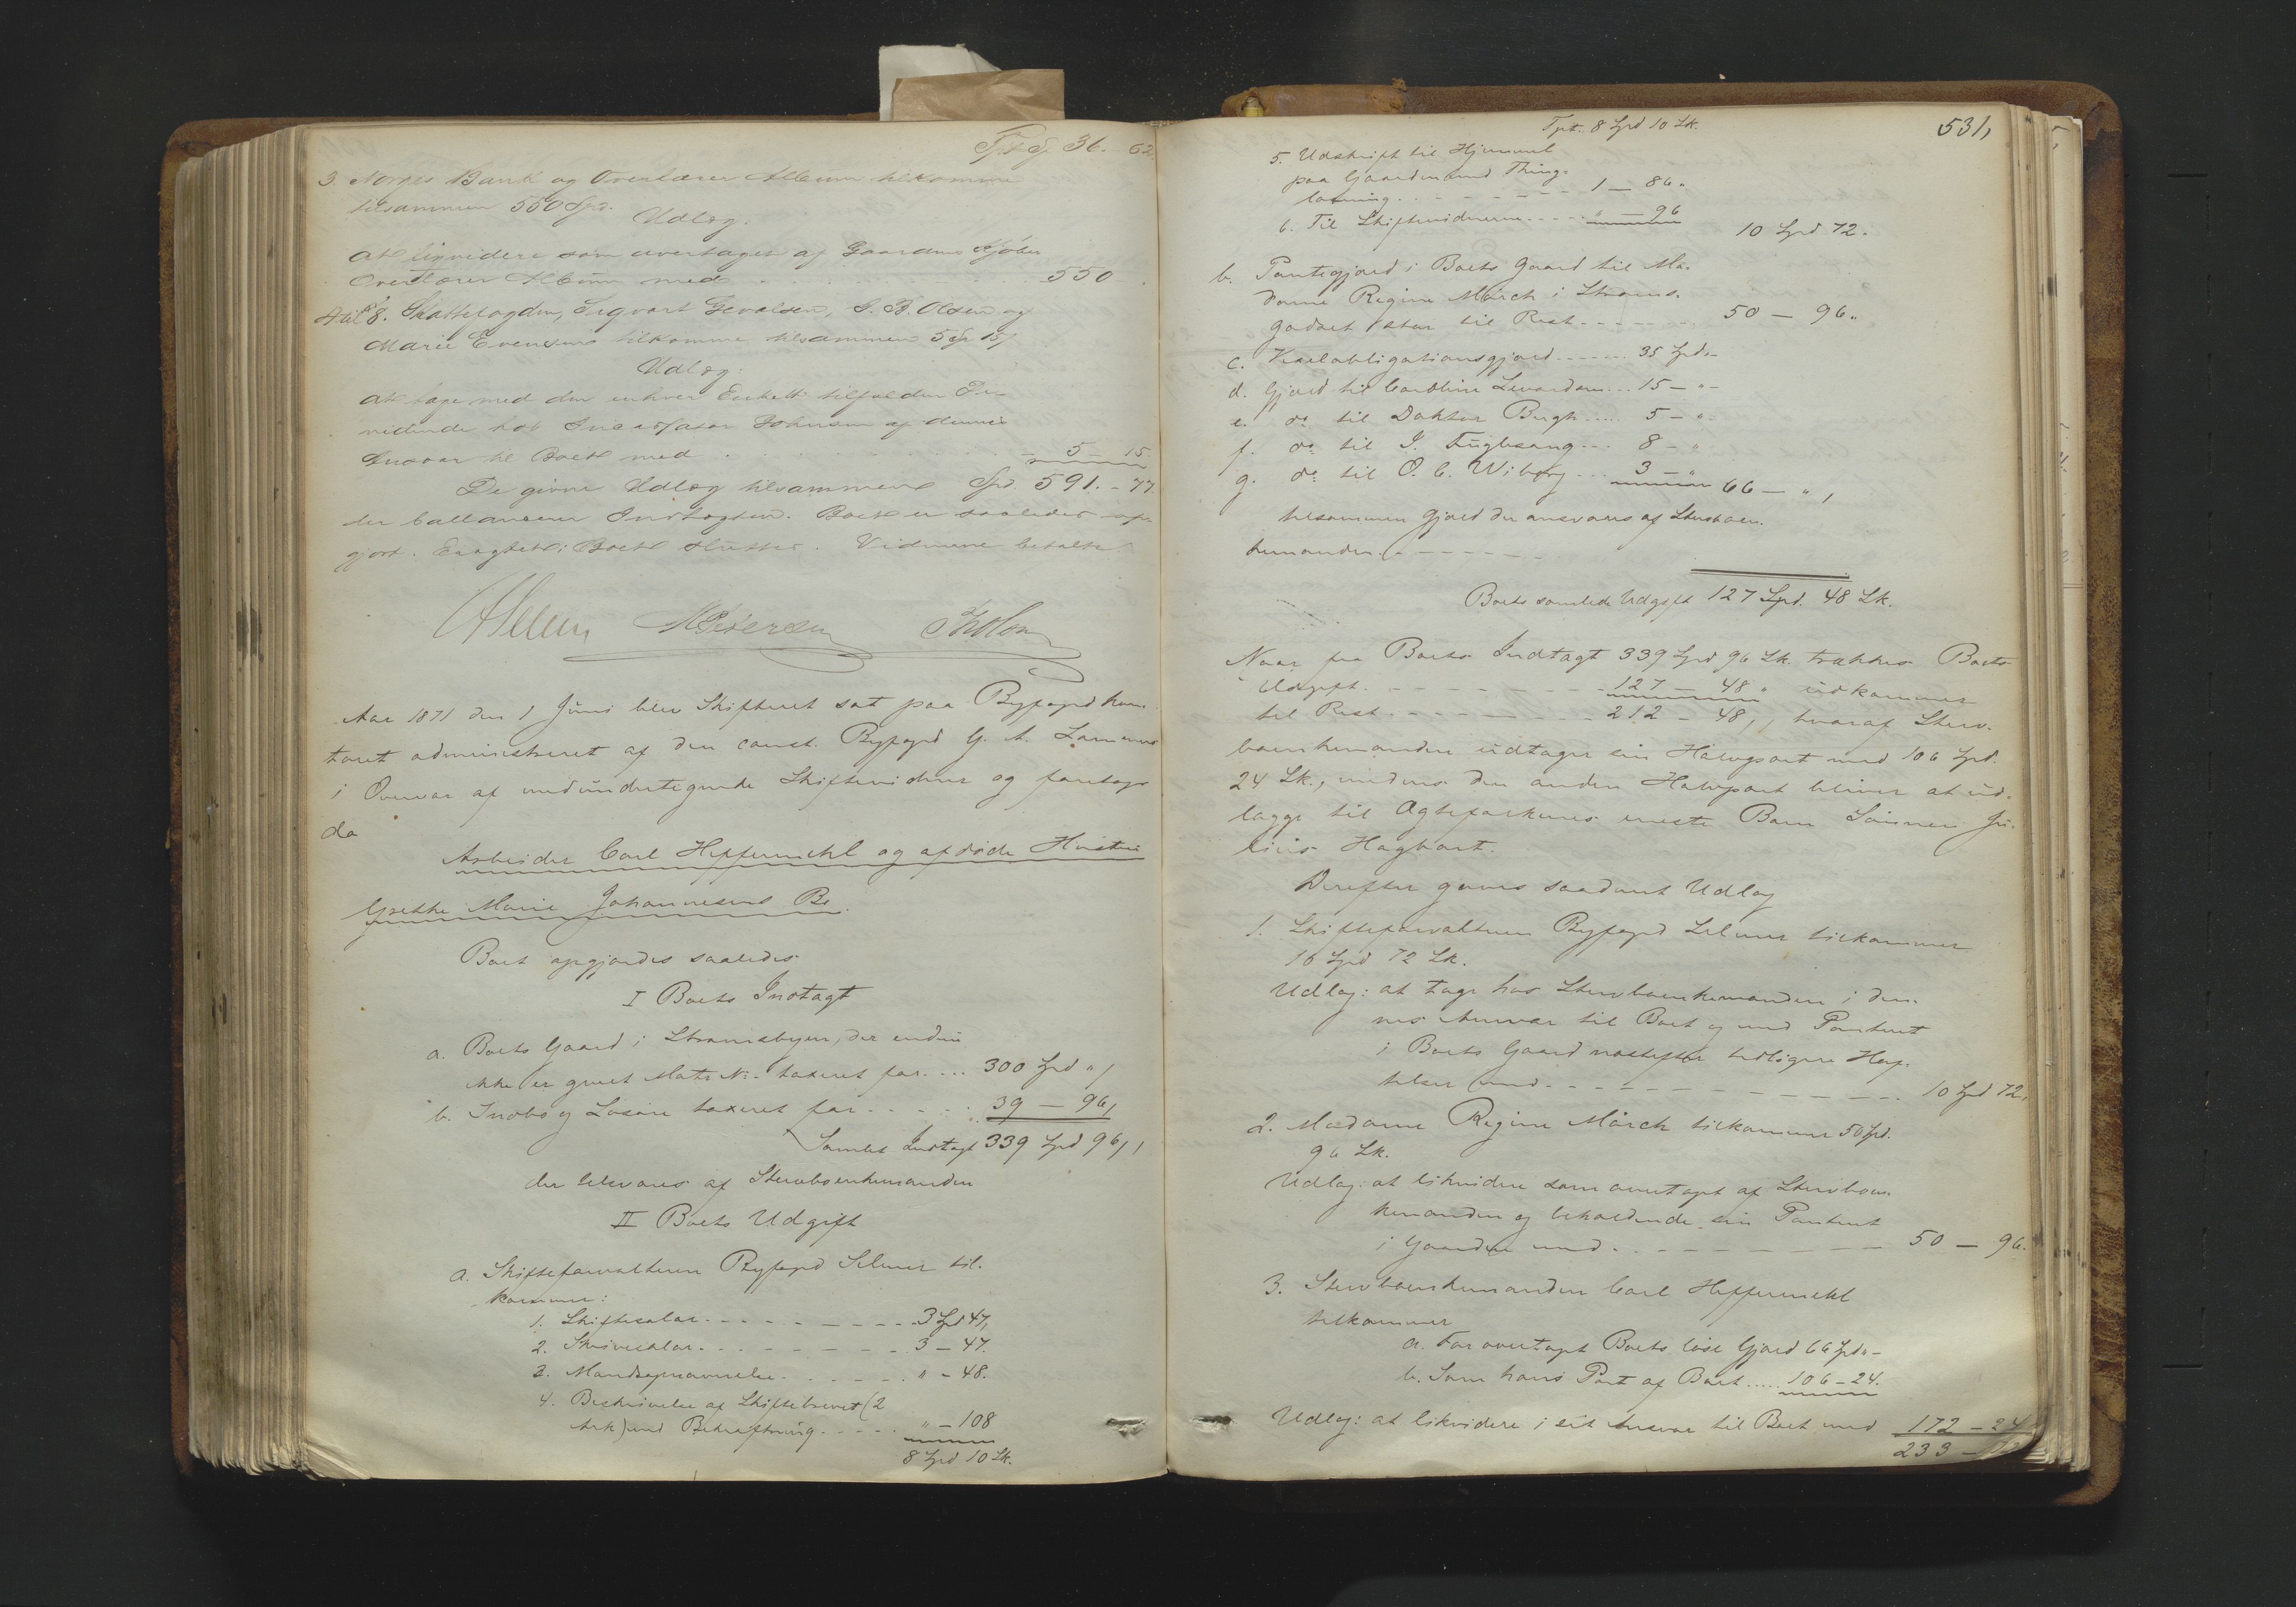 Tpt Sp. 36. 62.
3. Norges Bank og Overlærer Album tilkomme
tilsammen 550 Spd.
Udlæg.
at liqvidere som overtaget af Gaardens Kjøber
Overlærer Album med . . . . 550
4 til 8. Skattefogden, Sigvart Gevalsen, S. B. Olsen og
Marie Evensen tilkomme tilsammen 5 Sp 15 s
Udlæg:
at tage med den enhver Enkelt tilfaldne Di-
vidende hos Incassator Johnsen af dennes
Ansvar til Boet med . . . . 5 – 15.
De givne Udlæg tilsammen Spd. 591. – 77.
der ballancerer Indtægten. Boet er saaledes op-
gjort. Eragtet: Boet sluttes. Vidnerne betalte.
Selmer MPetersen
Aar 1871 den 1 Juni blev Skifteret sat paa Bygfogdkon-
toret administreret af den const. Byfogd G. A.
i Overvær af medundertegnede Skiftevidner og foretoges
da
Arbeider Carl Heffermehl og afdøde Hustru
Grethe Marie Johannesens Bo.
Boet opgjordes saaledes
I Boets Indtægt
a. Boets Gaard i Strømsbyen, der endnu
ikke er givet Matr. No. taxeret for. . . . 300 Spd " ,
b. Indbo og Løsøre taxeret for . . . . . 39 – 96,
Samlet Indtægt 339 Spd 96, ,
der tilsvares af Sterbboenkemanden
II Boets Udgift
a. Skifteforvalteren Byfogd Selmer til-
kommer:
1. Skiftesalær. . . . . . 3 Spd 47,
2. Skriversalær. . . . . . 3 – 47.
3. Mandsopnævnelse. . . . . . " – 48.
4. Beskrivelse af Skiftebrevet (2
Ark) med Bekræftning. . . . . " – 108
8 Spd 10 Sk.
Tpt. 8 Spd 10 Sk.
531,
5. Udskrift til Hjemmel
paa Gaarden med Thing-
læsning. . . . . . 1 – 86 "
6. Til Skiftevidnerne. . . . . " – 96
10 Spd 72.
b. Pantegjæld i Boets Gaard til Ma-
dame Regine Mørch i Strøms-
godset stor til Rest. . . . . 50 – 96 "
c. Vexelobligationsgjæld. . . . . 35 Spd "–
d. Gjæld til Caroline Leonardsen. . . 15 – " –
e. do. til Doktor Bugh. . . . . 5 – " –
f. do. til I. Fuglesang. . . 8 – "
g. do. til O. C. Wiborg . . . 3 – " 66 – " ,
tilsammen Gjæld der ansvares af Sterboen-
kemanden. . . . . .
Boets samlede Udgift 127 Spd. 48 Sk.
Naar fra Boets Indtægt 339 Spd 96 Sk. trækkes Boets
Udgift. . . . . . 127 – 48 " udkommer
til Rest. . . . . . 212 – 48, , hvoraf Sterv-
boenkemanden udtager sin Halvpart med 106 Spd.
24 Sk., medens den anden Halvpart bliver at ud-
lægge til Ægtefolkenes eneste Barn Sønnen Ju-
lius Hagbart.
Derefter gives saadant Udlæg
1. Skifteforvalteren Byfogd Selmer tilkommer
10 Spd 72 Sk.
Udlæg: at tage hos Stervboenkemanden i den-
nes Ansvar til Boet og med Panteret
i Boets Gaard næstefter tidligere Hef-
telser med. . . . . . 10 Spd 72,
2. Madame Regine Mørch tilkommer 50 Spd.
96 Sk.
Udlæg: at likvidere som overtaget af Stervboen-
kemanden og beholdende sin Panteret
i Gaarden med. . . . . . 50 – 96.
3. Stervboenkemanden Carl Heffermehl
tilkommer
a. For overtaget Boets løse Gjæld 66 Spd "–
b. Som hans Part af Boet. . . . . 106 – 24.
Udlæg: at likvidere i sit Ansvar til Boet med 172 – 24
233 – 72